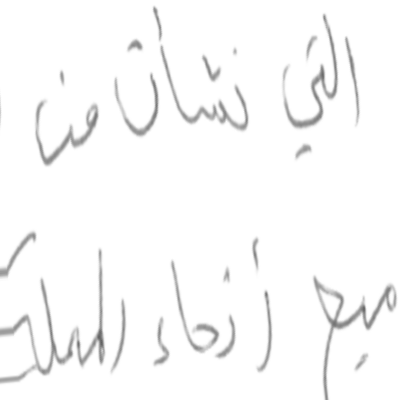 التي نشأت من
جميع أنحاء المملكة